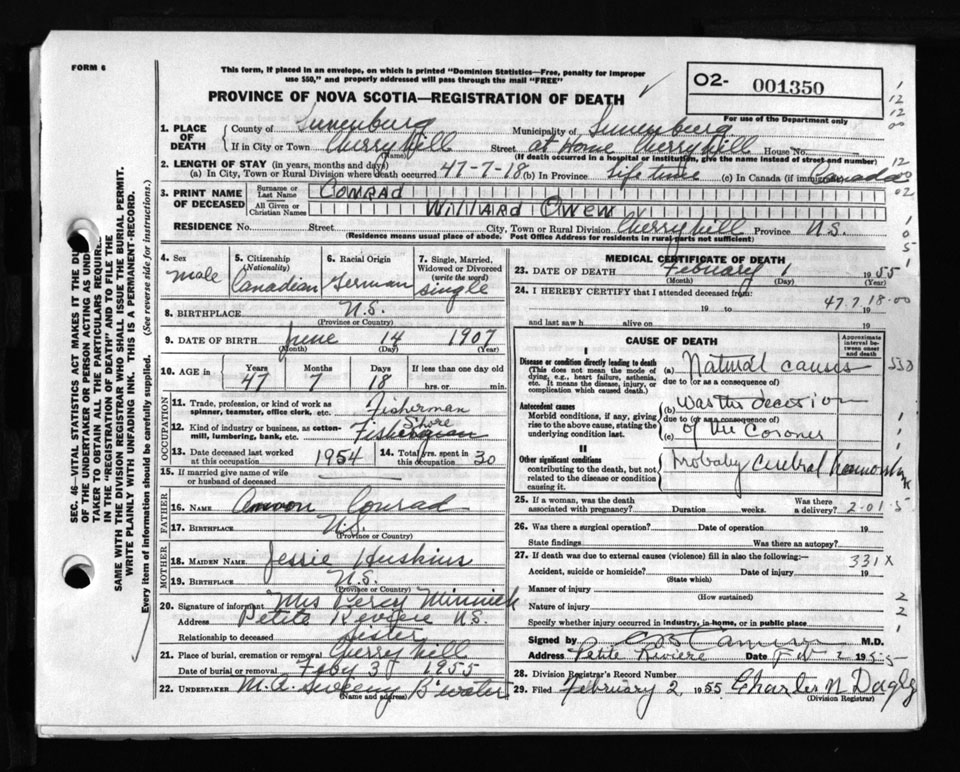 FORM 6
This form, if placed in an envelope, on which is printed "Dominion Statistics—Free, penalty for improper use $50," and properly addressed will pass through the mail "FREE"
PROVINCE OF NOVA SCOTIA—REGISTRATION OF DEATH
O2- 001350
For use of the Department only
1. PLACE OF DEATH County of Lunenburg Municipality of Lunenburg
If in City or Town Cherry Hill (Name) Street at Home Cherry Hill House No.
(If death occurred in a hospital or institution, give the name instead of street and number)
2. LENGTH OF STAY (in years, months and days)
(a) In City, Town or Rural Division where death occurred 47-7-18 (b) In Province Life time (c) In Canada (if immigrant) Canada
3. PRINT NAME OF DECEASED Surname or Last Name CONRAD
All Given or Christian Names WILLARD OWEN
RESIDENCE No. Street City, Town or Rural Division Cherry hill Province N.S.
(Residence means usual place of abode. Post Office Address for residents in rural parts not sufficient)
4. Sex male
5. Citizenship (Nationality) Canadian
6. Racial Origin German
7. Single, Married, Widowed or Divorced (write the word) single
8. BIRTHPLACE N.S. (Province or Country)
9. DATE OF BIRTH June (Month) 14 (Day) 1907 (Year)
10. AGE in Years 47 Months 7 Days 18 If less than one day old hrs. or min.
OCCUPATION
11. Trade, profession, or kind of work as spinner, teamster, office clerk, etc. Fisherman
12. Kind of industry or business, as cotton-mill, lumbering, bank, etc. Shore
13. Date deceased last worked at this occupation 1954
14. Total yrs. spent in this occupation 30
15. If married give name of wife or husband of deceased
FATHER
16. Name Conrad
17. Birthplace N.S. (Province or Country)
MOTHER
18. MAIDEN NAME Jessie Huskins
19. BIRTHPLACE N.S. (Province or Country)
20. Signature of informant Mrs Percy
Address Petite Riviere N.S.
Relationship to deceased Sister
21. Place of burial, cremation or removal Cherry hill
Date of burial or removal Feby 3 1955
22. UNDERTAKER M.A. Sweeny B'water (Name and address)
MEDICAL CERTIFICATE OF DEATH
23. DATE OF DEATH February (Month) 1 (Day) 1955 (Year)
24. I HEREBY CERTIFY that I attended deceased from 47.7.18.00
19 to 19
and last saw h alive on 19
CAUSE OF DEATH
Approximate interval between onset and death
I
Disease or condition directly leading to death (This does not mean the mode of dying, e.g., heart failure, asthenia, etc. It means the disease, injury, or complication which caused death.)
(a) Natural causes
due to (or as a consequence of)
Antecedent causes
Morbid conditions, if any, giving rise to the above cause, stating the underlying condition last.
(b) was the decision
due to (or as a consequence of)
(c) of the Coroner
II
Other significant conditions contributing to the death, but not related to the disease or condition causing it.
Probably Cerebral
25. If a woman, was the death associated with pregnancy? Duration weeks. Was there a delivery? 2-01-5
26. Was there a surgical operation? Date of operation
State findings Was there an autopsy?
27. If death was due to external causes (violence) fill in also the following:— 331X
Accident, suicide or homicide? (State which) Date of injury 19
Manner of injury (How sustained)
Nature of injury
Specify whether injury occurred in industry, in home, or in public place
Signed by M.D.
Address Petite Riviere Date Feb 2 1955
28. Division Registrar's Record Number
29. Filed February 2, 1955 Charles N (Division Registrar)
SEC. 46—VITAL STATISTICS ACT MAKES IT THE
OF THE UNDERTAKER OR PERSON ACTING AS
TAKER TO OBTAIN ALL THE PARTICULARS
IN THE "REGISTRATION OF DEATH" AND TO FILE THE
SAME WITH THE DIVISION REGISTRAR WHO SHALL ISSUE THE BURIAL PERMIT.
WRITE PLAINLY WITH UNFADING INK. THIS IS A PERMANENT RECORD.
Every item of information should be carefully supplied. (See reverse side for instructions.)